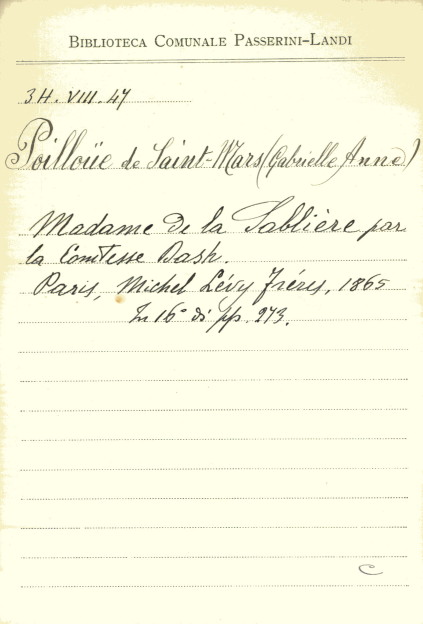 BIBLIOTECA COMUNALE PASSERINI-LANDI
3H. VIII. 47
Poilloüe de Saint-Mars (Gabrielle Anne)
Madame de la Sablière par
la Comtesse Dash.
Paris, Michel Lévy Fréres, 1865
In 16° di pp. 273.
C